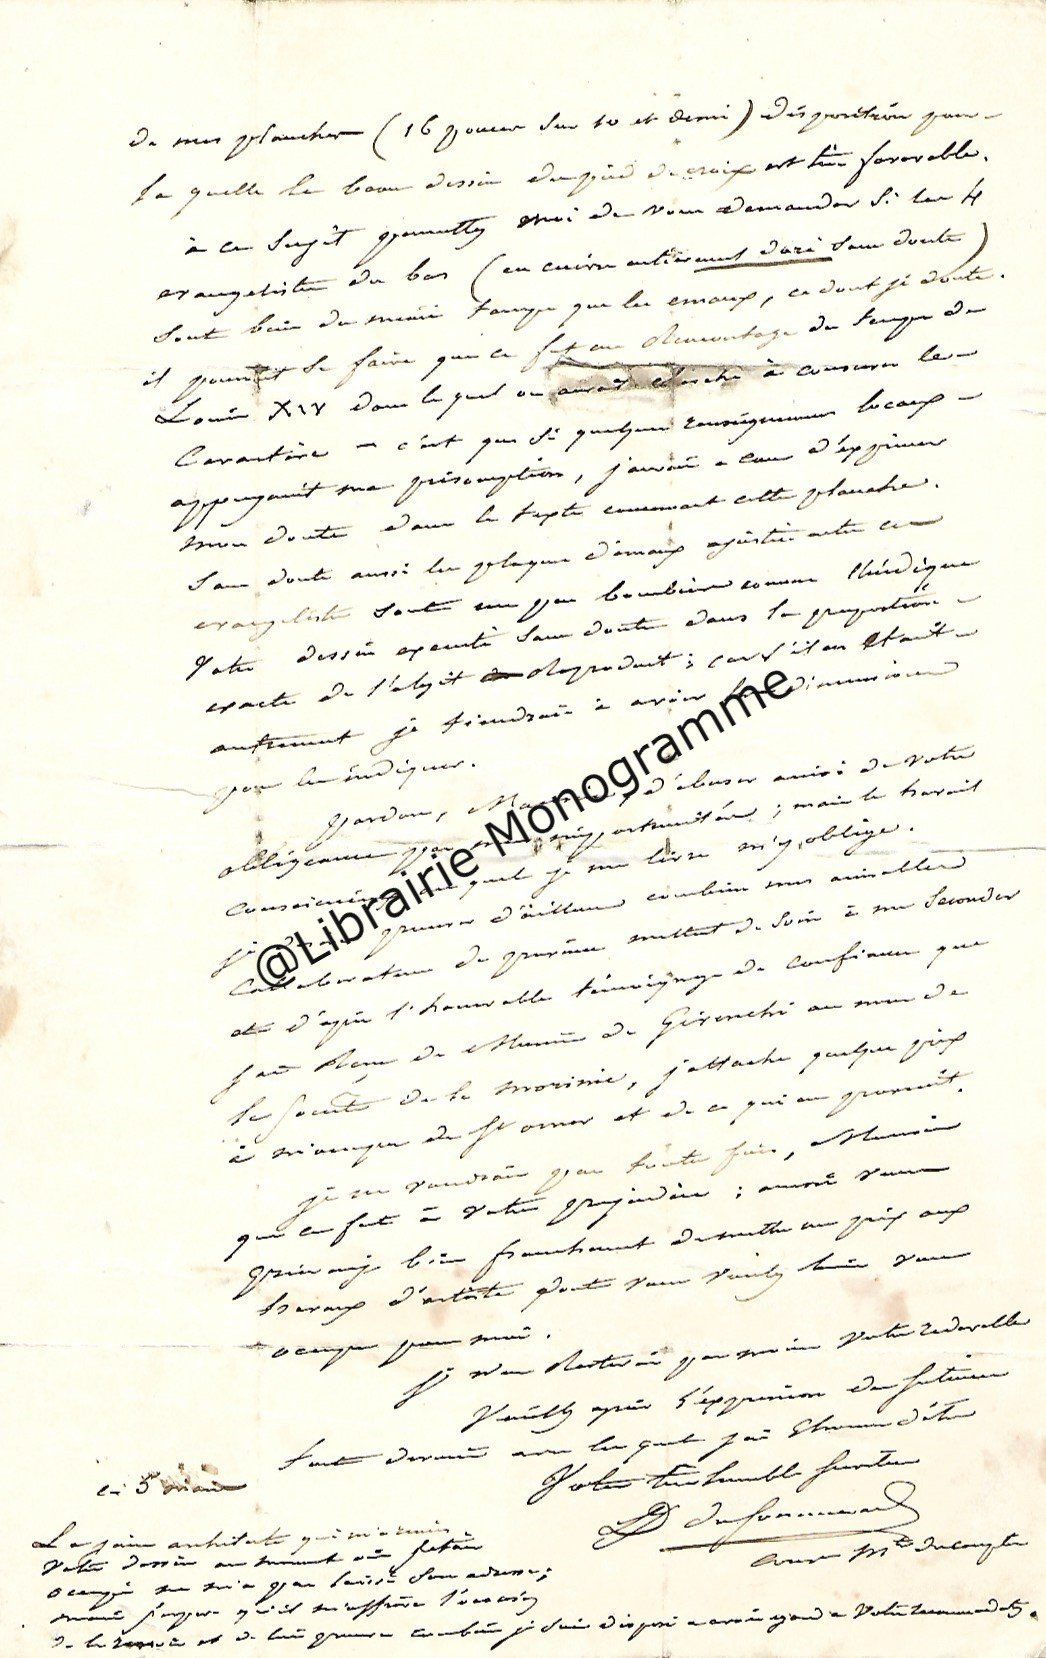 de mes planches (16 pouces sur 10 et demi) disposition pour
la quelle le beau dessin du pied de croix est très favorable.
à ce sujet permettez moi de vous demander si les 4
evangelistes du bas (en cuivre entièrement doré sans doute)
sont bien du même temps que les emaux, ce dont je doute.
il pourrait se faire que ce fut un Remontage du temps de
Louis XIV dans lequel on aurait cherché à conserver le
Caractère - c'est que si quelques renseignemens locaux
appuyaient ma présomption, j'aurais a coeur d'exprimer
mon doute dans le texte concernant cette planche.
Sans doute aussi les plaques d'émaux ajustées entre ces
evangelistes sont un peu bombées comme l'indique
Votre dessin executé sans doute dans la proportion
exacte de l'objet Reproduit; car s'il en Etait
autrement je tiendrais à avoir les dimensions
pour les indiquer.
Pardon, Monsieur, d'abuser ainsi de votre
obligeance par mes importunités; mais le travail
consciencieux auquel je me livre m'y oblige.
je d'ailleurs combien mes aimables
Collaborateurs de province mettent de soin à me seconder
et d'après l'honorable témoignage de confiance que
j'ai Reçu de Monsieur de Givenchi au nom de
la Société de la Morinie, j'attache quelque prix
à m'occuper de St omer et de ce qui en provient.
je ne voudrais pas toute fois, Monsieur
que ce fut à Votre préjudice; aussi vous
prierai je bien franchement de mettre un prix aux
travaux d'artiste dont vous voulez bien vous
occuper pour moi.
Je n'en Resterai pas moins Votre redevable
Veuillez agréer l'expression des sentimens
tout dévoués avec lesquels j'ai l'honneur d'être
Votre très humble serviteur
D du Sommerard
Conser Me des comptes
ce 5 mai
Le jeune architecte qui m'a remis
Votre dessin au moment où j'étais
occupé ne m'a pas laissé son adresse;
mais j'espère qu'il m'offrira l'occasion
de le revoir et de lui prouver combien je suis disposé a avoir egard a Votre recommandation.
@Librairie Monogramme